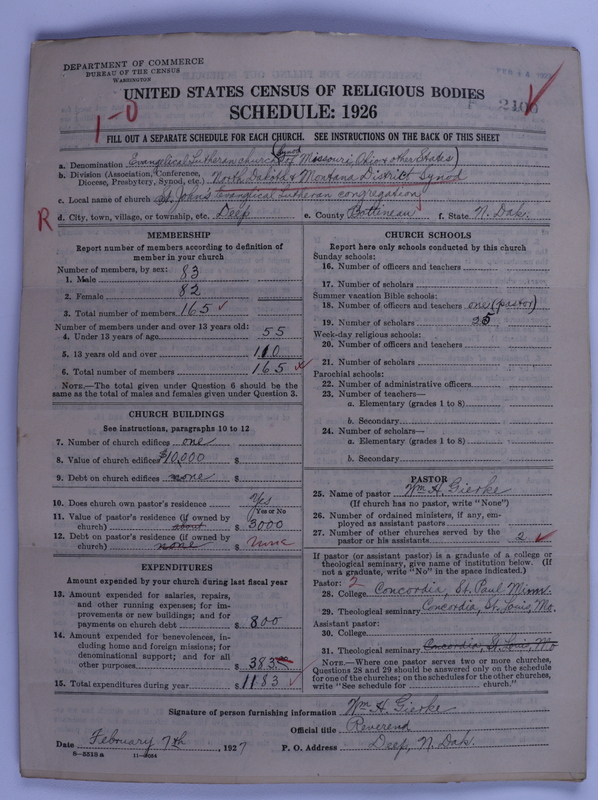 DEPARTMENT OF COMMERCE
BUREAU OF THE CENSUS
WASHINGTON
UNITED STATES CENSUS OF RELIGIOUS BODIES
SCHEDULE: 1926
1-0
FILL OUT A SEPARATE SCHEDULE FOR EACH CHURCH. SEE INSTRUCTIONS ON THE BACK OF THIS SHEET
a. Denomination Evangelical Lutheran church (Synod of Missouri, Ohio & other States)
b. Division (Association, Conference, Diocese, Presbytery, Synod, etc.) North Dakota & Montana District Synod
c. Local name of church St. John's Evanglical Lutheran congregation
R
d. City, town, village, or township, etc. Deep e. County Bottineau f. State N. Dak.
MEMBERSHIP
Report number of members according to definition of
member in your church
Number of members, by sex:
1. Male 83
2. Female 82
3. Total number of members 165
Number of members under and over 13 years old:
4. Under 13 years of age 55
5. 13 years old and over 110
6. Total number of members 165
NOTE.—The total given under Question 6 should be the
same as the total of males and females given under Question 3.
CHURCH BUILDINGS
See instructions, paragraphs 10 to 12
7. Number of church edifices one
8. Value of church edifices $10,000 $
9. Debt on church edifices none $
10. Does church own pastor's residence Yes
Yes or No
11. Value of pastor's residence (if owned by
church) about $ 3000
12. Debt on pastor's residence (if owned by
church) none $ none
EXPENDITURES
Amount expended by your church during last fiscal year
13. Amount expended for salaries, repairs,
and other running expenses; for im-
provements or new buildings; and for
payments on church debt $ 800
14. Amount expended for benevolences, in-
cluding home and foreign missions; for
denominational support; and for all
other purposes $ 383
15. Total expenditures during year $ 1183
CHURCH SCHOOLS
Report here only schools conducted by this church
Sunday schools:
16. Number of officers and teachers
17. Number of scholars
Summer vacation Bible schools:
18. Number of officers and teachers one (pastor)
19. Number of scholars 25
Week-day religious schools:
20. Number of officers and teachers
21. Number of scholars
Parochial schools:
22. Number of administrative officers
23. Number of teachers—
a. Elementary (grades 1 to 8)
b. Secondary
24. Number of scholars—
a. Elementary (grades 1 to 8)
b. Secondary
PASTOR
25. Name of pastor Wm H. Gierke
(If church has no pastor, write "None")
26. Number of ordained ministers, if any, em-
ployed as assistant pastors
27. Number of other churches served by the
pastor or his assistants 2
If pastor (or assistant pastor) is a graduate of a college or
theological seminary, give name of institution below. (If
not a graduate, write "No" in the space indicated.)
Pastor: 2
28. College Concordia, St. Paul Minn.
29. Theological seminary Concordia, St. Louis, Mo.
Assistant pastor:
30. College
31. Theological seminary Concordia, St. Louis, Mo
NOTE.—Where one pastor serves two or more churches,
Questions 28 and 29 should be answered only on the schedule
for one of the churches; on the schedules for the other churches,
write "See schedule for church."
Signature of person furnishing information Wm H. Gierke
Official title Reverend
Date February 7th, 1927 P. O. Address Deep, N. Dak.
8—5518 a